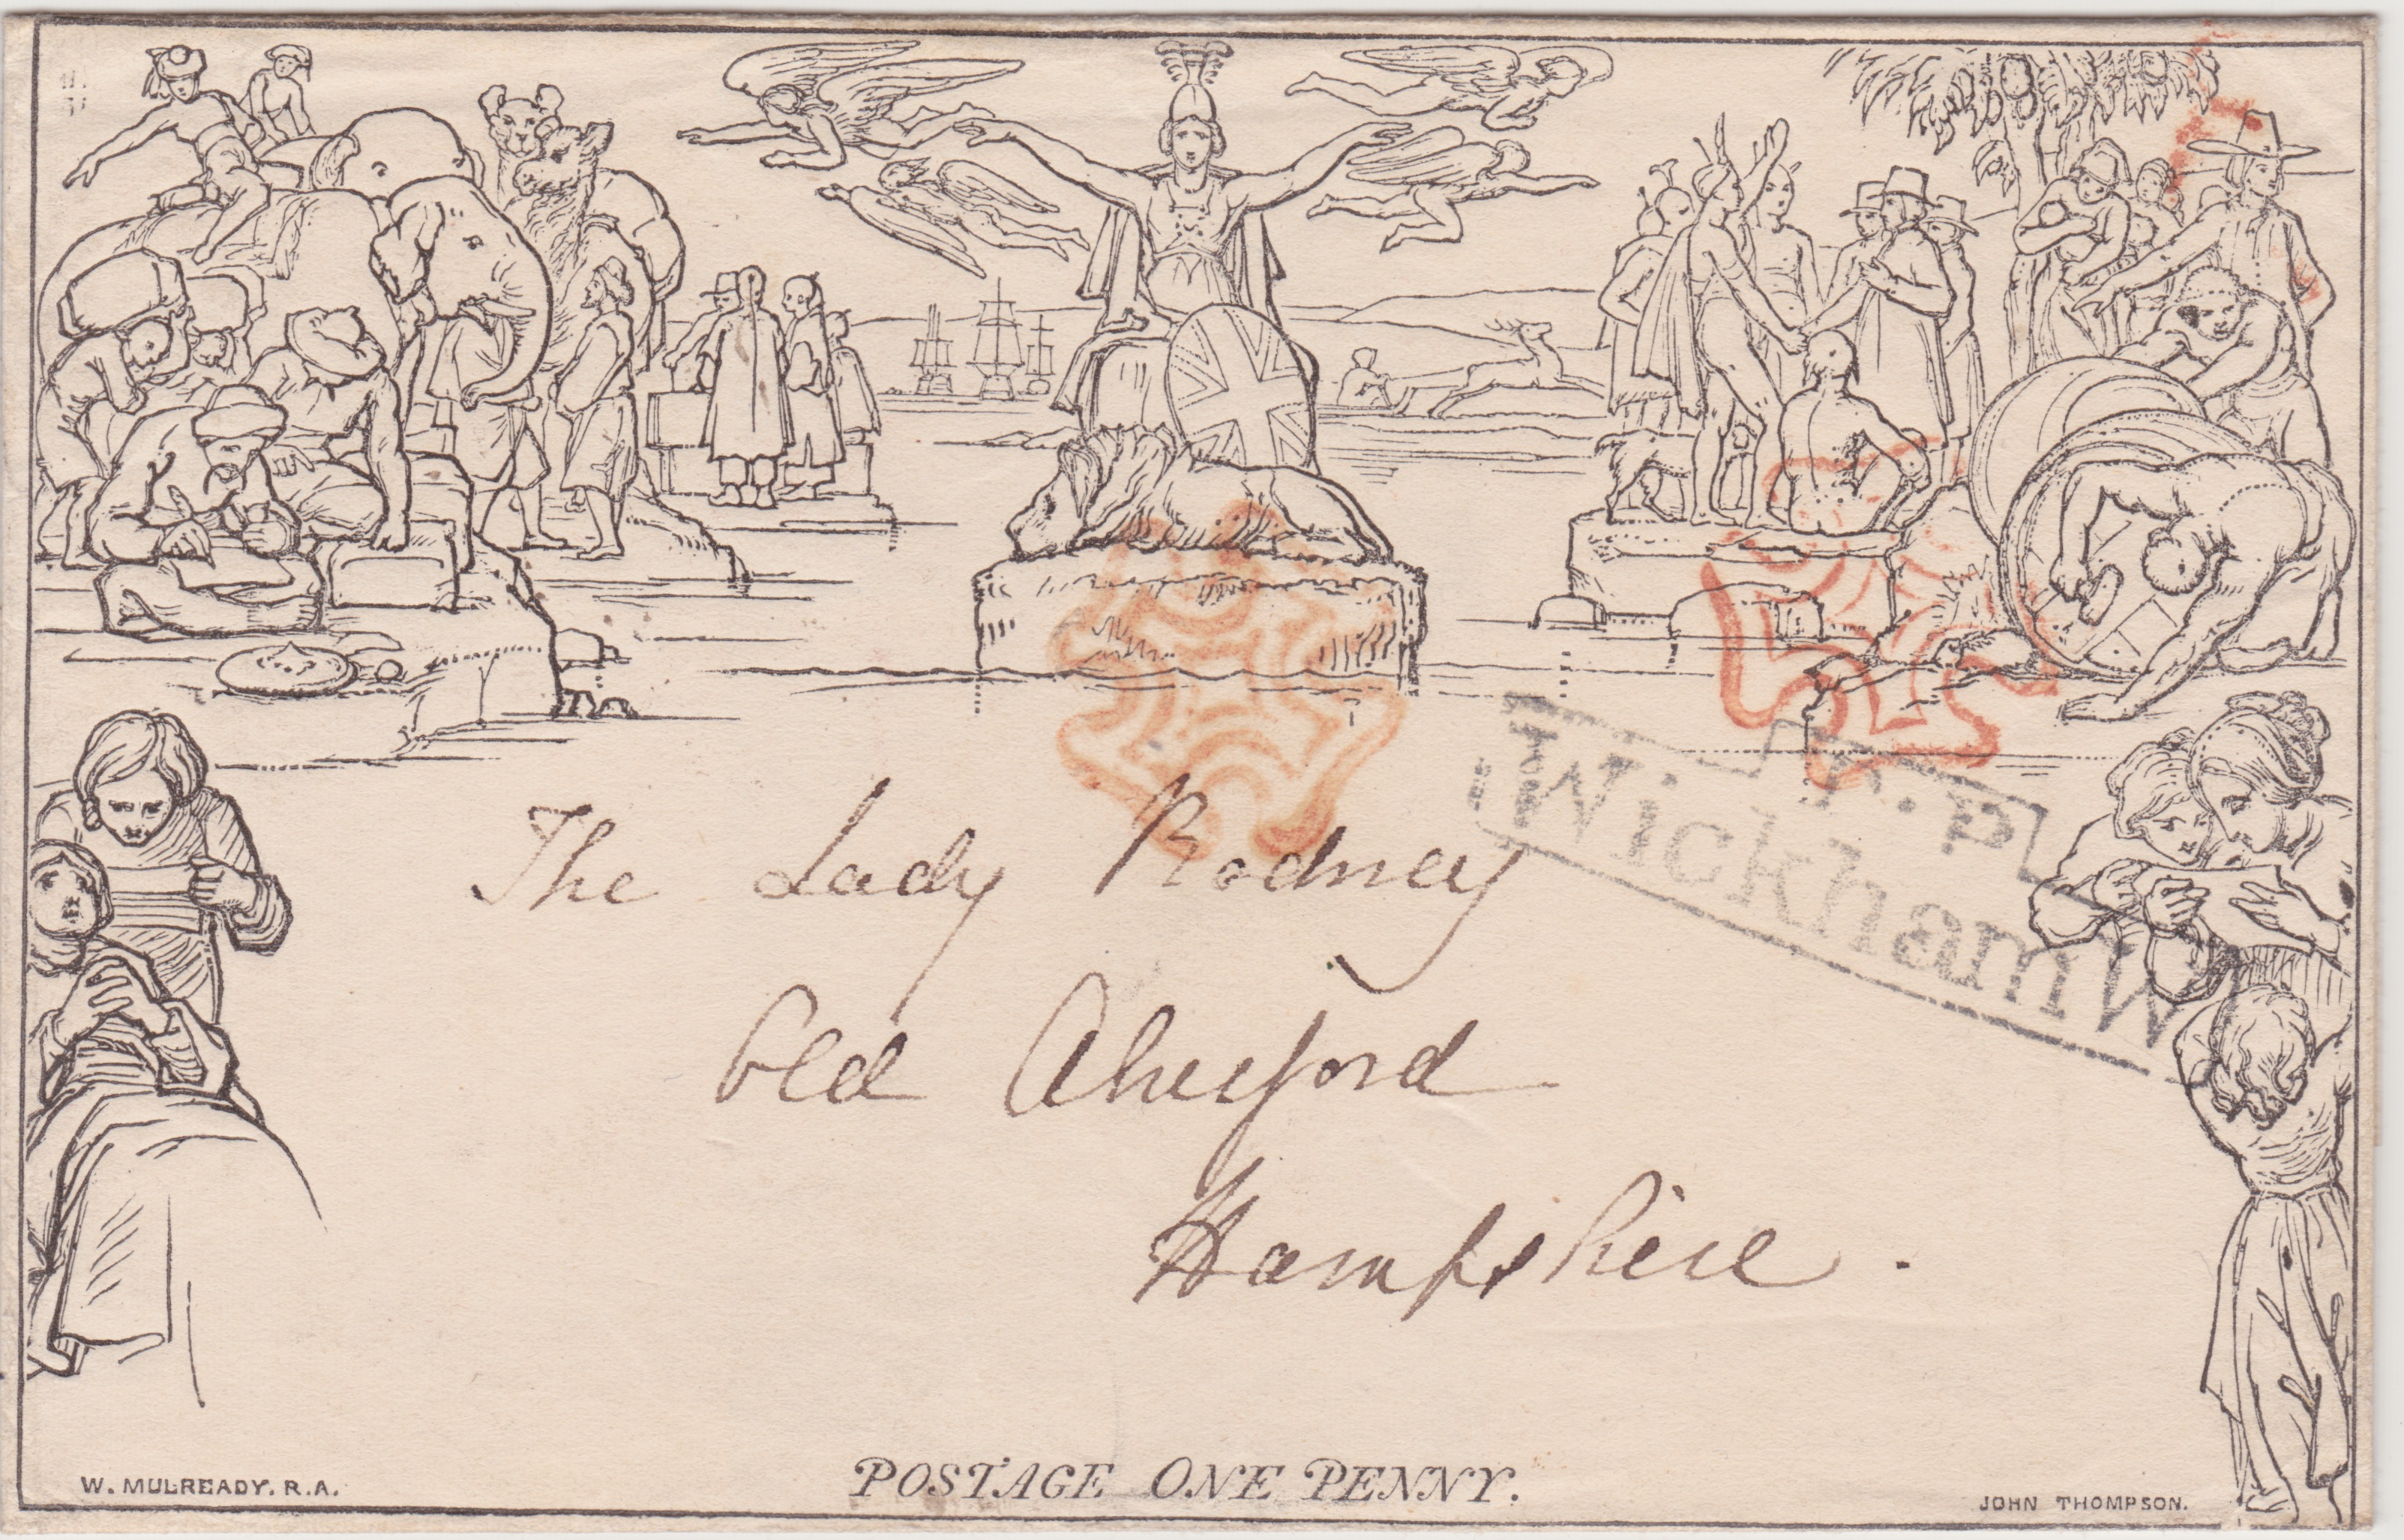 P.P
WickhamW
The Lady Rodney
Old Alresford
Hampshire.
POSTAGE ONE PENNY.
W. MULREADY. R.A.
JOHN THOMPSON.